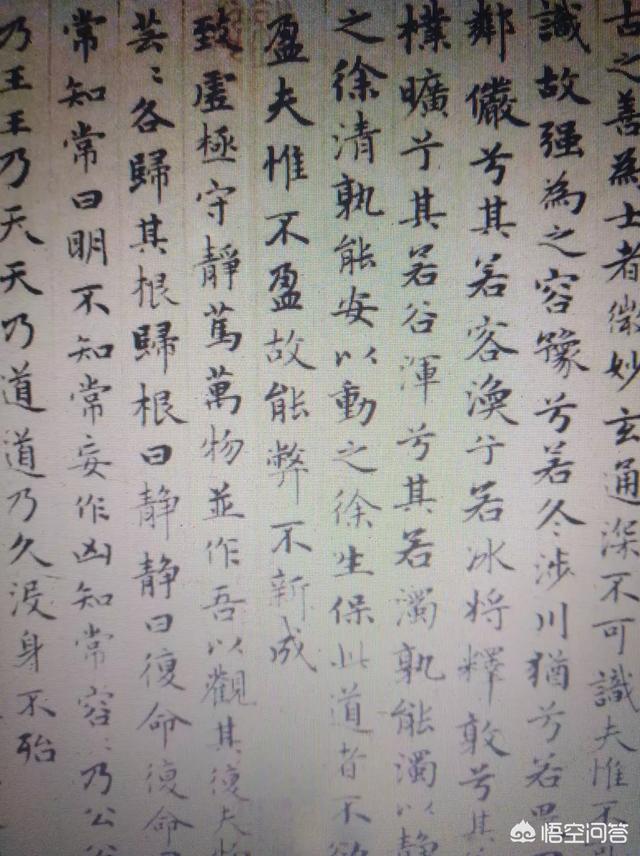 古之善為士者微妙玄通深不可識夫惟不
識故强為之容豫兮若冬涉川猶兮若畏
鄰儼兮其若容渙兮若冰将釋敦兮其
樸曠兮其若谷渾兮其若濁孰能濁以静
之徐清孰能安以動之徐生保此道者不欲
盈夫惟不盈故能弊不新成
致虛極守靜篤萬物並作吾以觀其復夫物
芸〻各歸其根歸根曰静静曰復命復命
常知常曰明不知常妄作凶知常容〻乃公
乃王王乃天天乃道道乃久没身不殆
悟空问答